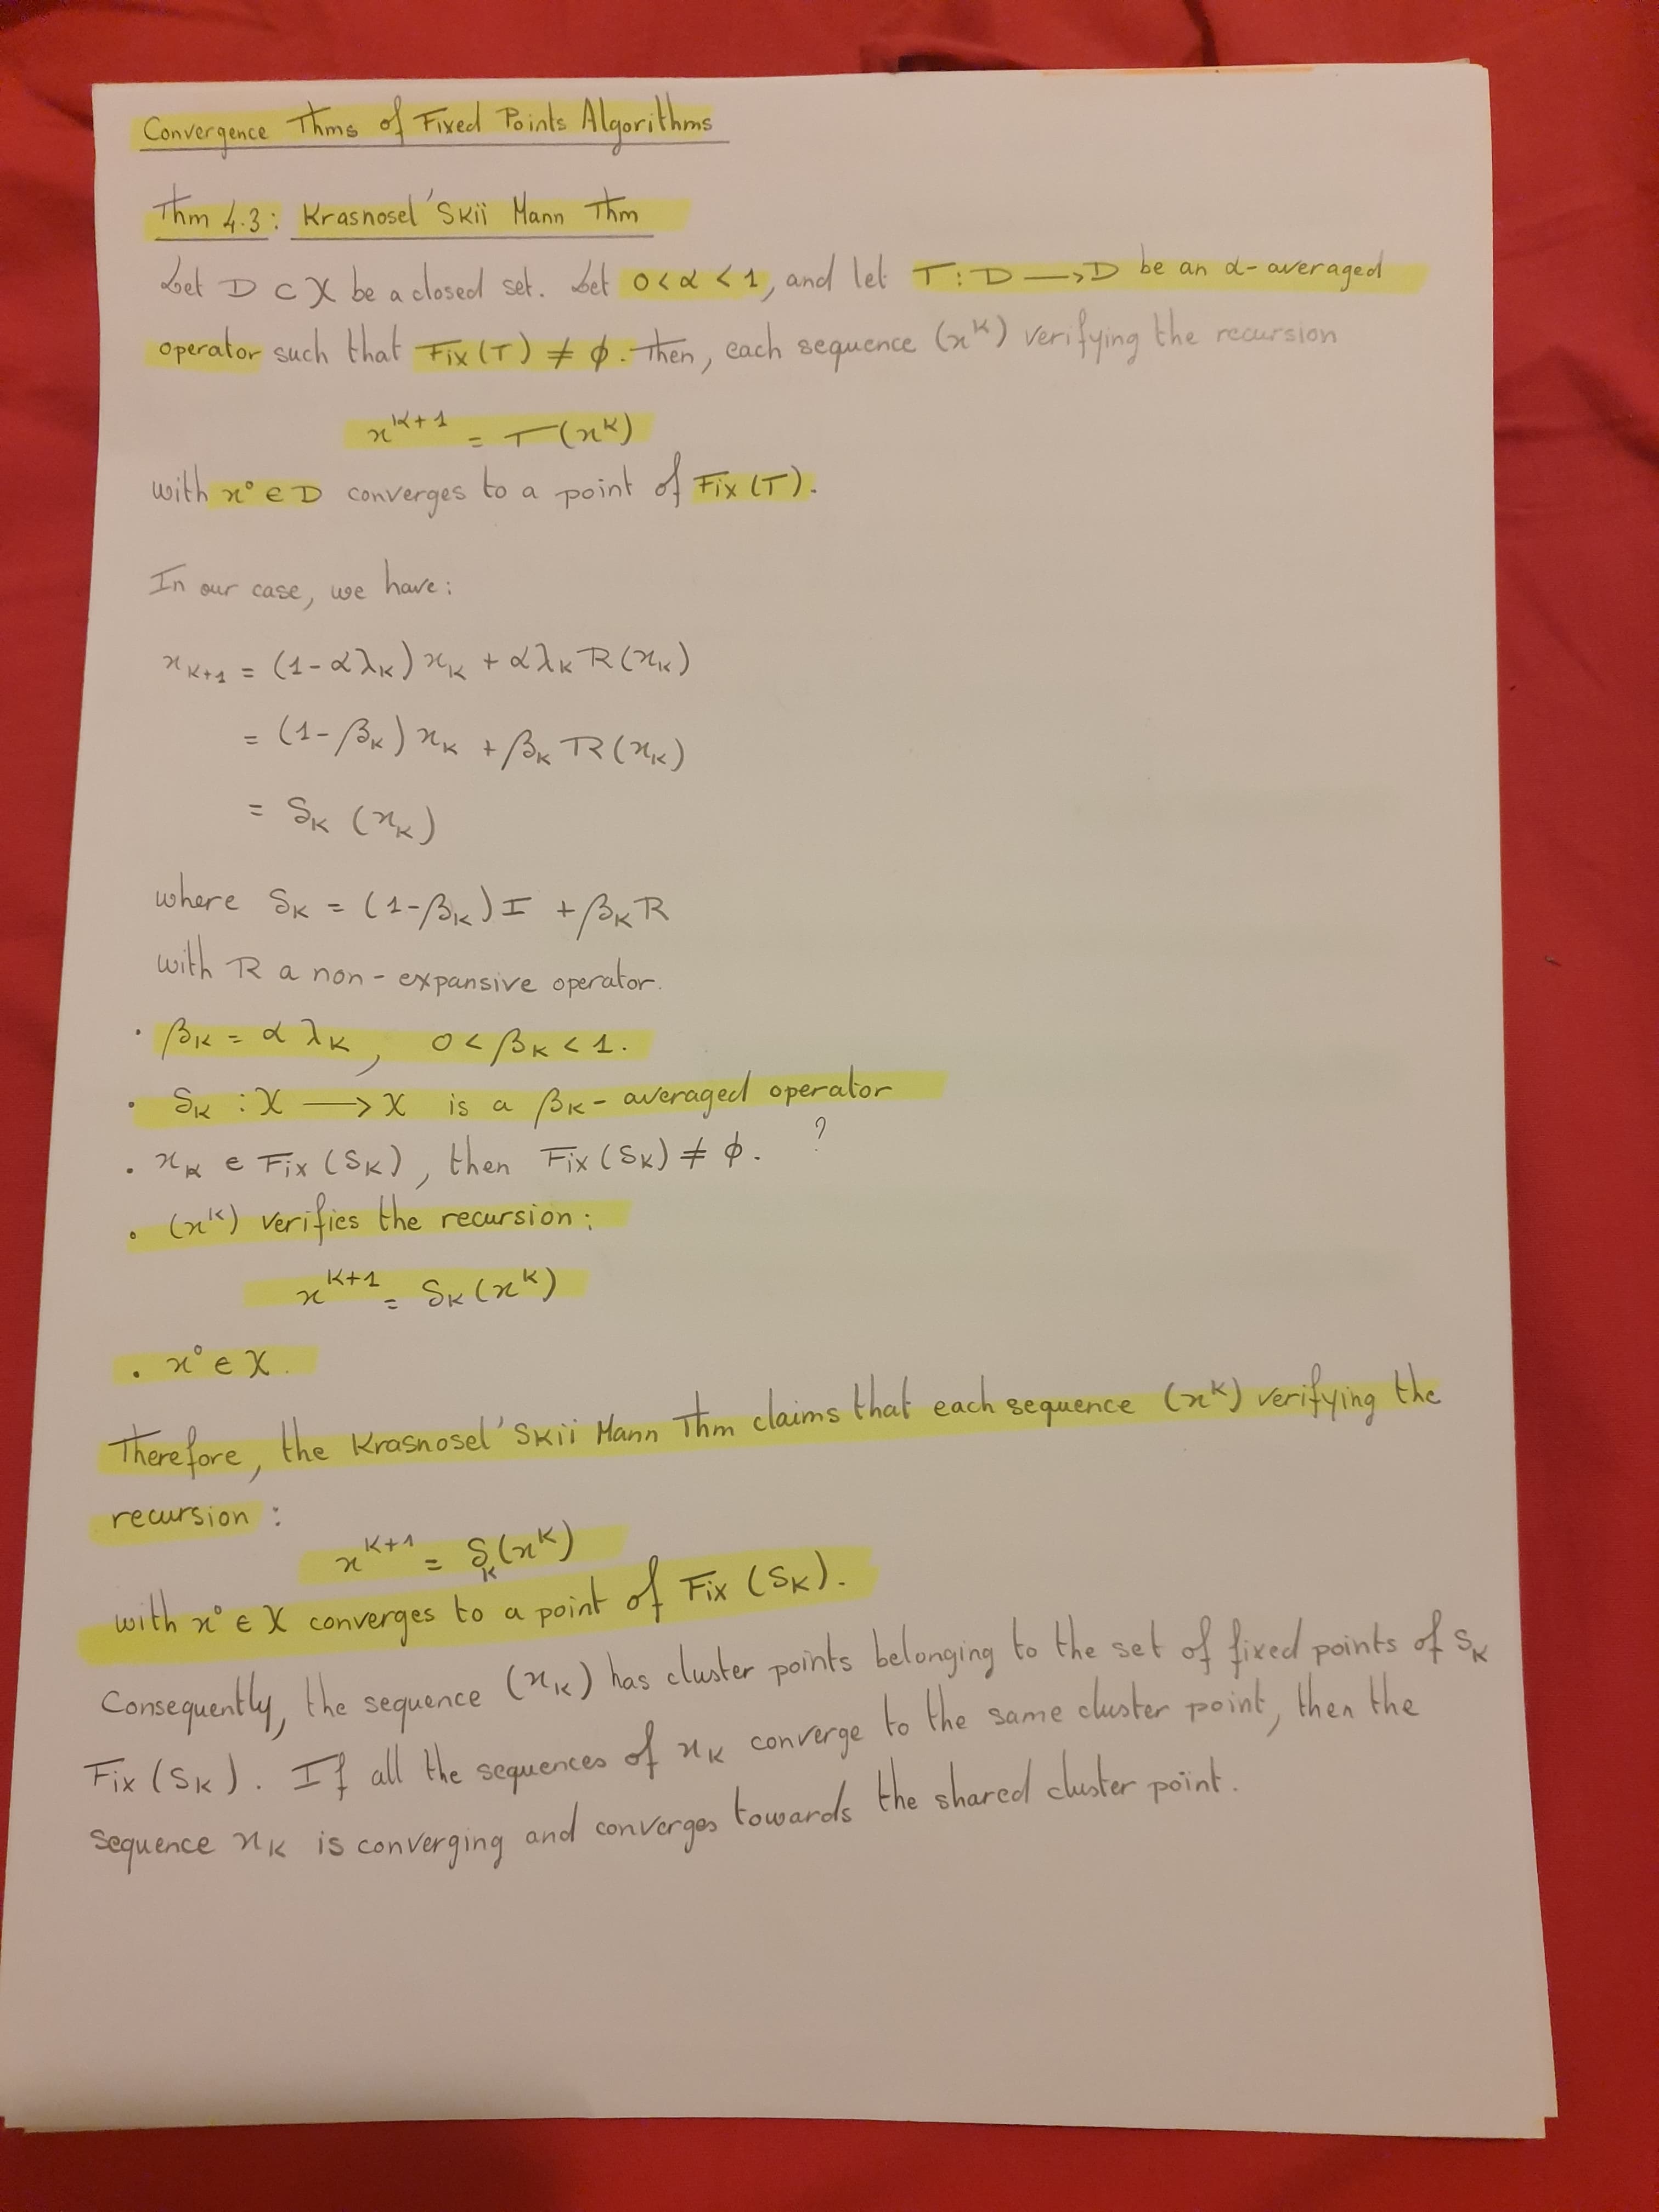 Convergence Thms of Fixed Points Algorithms
Thm 4.3: Krasnosel'Skii Mann Thm
Let D ⊂ X be a closed set. Let 0 < α < 1, and let T : D ⟶ D be an α-averaged
operator such that Fix(T) ≠ ϕ. Then, each sequence (x^K) verifying the recursion
x^{K+1} = T(x^K)
with x° ∈ D converges to a point of Fix(T).
In our case, we have:
x_{K+1} = (1-αλ_K) x_K + αλ_K R(x_K)
= (1-β_K) x_K + β_K R(x_K)
= S_K (x_K)
where S_K = (1-β_K) I + β_K R
with R a non-expansive operator.
• β_K = α λ_K, 0 < β_K < 1.
• S_K : X ⟶ X is a β_K-averaged operator
• x_K ∈ Fix(S_K), then Fix(S_K) ≠ ϕ. ?
• (x^K) verifies the recursion:
x^{K+1} = S_K(x^K)
• x° ∈ X.
Therefore, the Krasnosel'Skii Mann Thm claims that each sequence (x^K) verifying the
recursion:
x^{K+1} = S_K(x^K)
with x° ∈ X converges to a point of Fix(S_K).
Consequently, the sequence (x_K) has cluster points belonging to the set of fixed points of S_K
Fix(S_K). If all the sequences of x_K converge to the same cluster point, then the
sequence x_K is converging and converges towards the shared cluster point.